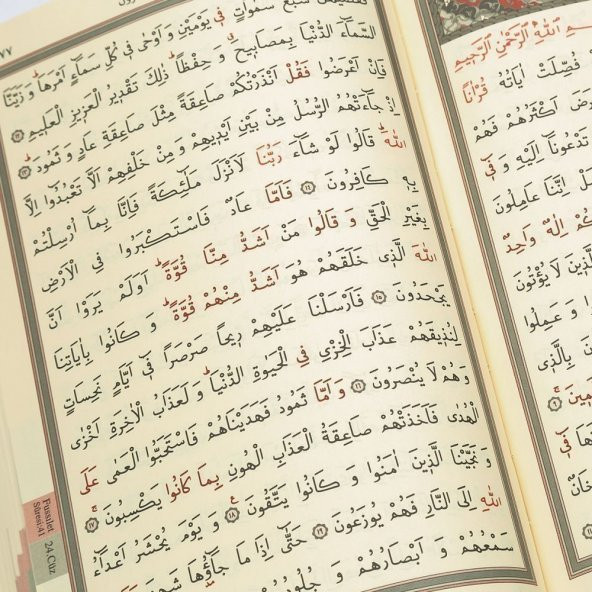 اللّٰهِ الرَّحْمٰنِ الرَّحِيمِ
فُصِّلَتْ اٰيَاتُهُ قُرْاٰنًا
اَكْثَرُهُمْ فَهُمْ
تَدْعُونَٓا اِلَيْهِ وَفِي
اِنَّنَا عَامِلُونَ
اِلٰهٌ وَاحِدٌ
لَا يُؤْتُونَ
وَعَمِلُوا
بِالَّذِي
سَبْعَ سَمٰوَاتٍ فِي يَوْمَيْنِ وَاَوْحٰى فِي كُلِّ سَمَٓاءٍ اَمْرَهَا وَزَيَّنَّا
السَّمَٓاءَ الدُّنْيَا بِمَصَابِيحَ وَحِفْظًا ذٰلِكَ تَقْدِيرُ الْعَزِيزِ الْعَلِيمِ ١٢
فَاِنْ اَعْرَضُوا فَقُلْ اَنْذَرْتُكُمْ صَاعِقَةً مِثْلَ صَاعِقَةِ عَادٍ وَثَمُودَ ١٣
اِذْ جَٓاءَتْهُمُ الرُّسُلُ مِنْ بَيْنِ اَيْدِيهِمْ وَمِنْ خَلْفِهِمْ اَلَّا تَعْبُدُٓوا اِلَّا
اللّٰهَ قَالُوا لَوْ شَٓاءَ رَبُّنَا لَاَنْزَلَ مَلٰٓئِكَةً فَاِنَّا بِمَٓا اُرْسِلْتُمْ
بِهِ كَافِرُونَ ١٤ فَاَمَّا عَادٌ فَاسْتَكْبَرُوا فِي الْاَرْضِ
بِغَيْرِ الْحَقِّ وَقَالُوا مَنْ اَشَدُّ مِنَّا قُوَّةً اَوَلَمْ يَرَوْا اَنَّ
اللّٰهَ الَّذِي خَلَقَهُمْ هُوَ اَشَدُّ مِنْهُمْ قُوَّةً وَكَانُوا بِاٰيَاتِنَا
يَجْحَدُونَ ١٥ فَاَرْسَلْنَا عَلَيْهِمْ رِيحًا صَرْصَرًا فِٓي اَيَّامٍ نَحِسَاتٍ
لِنُذِيقَهُمْ عَذَابَ الْخِزْيِ فِي الْحَيٰوةِ الدُّنْيَا وَلَعَذَابُ الْاٰخِرَةِ اَخْزٰى
وَهُمْ لَا يُنْصَرُونَ ١٦ وَاَمَّا ثَمُودُ فَهَدَيْنَاهُمْ فَاسْتَحَبُّوا الْعَمٰى عَلَى
الْهُدٰى فَاَخَذَتْهُمْ صَاعِقَةُ الْعَذَابِ الْهُونِ بِمَا كَانُوا يَكْسِبُونَ ١٧
وَنَجَّيْنَا الَّذِينَ اٰمَنُوا وَكَانُوا يَتَّقُونَ ١٨ وَيَوْمَ يُحْشَرُ اَعْدَٓاءُ
اللّٰهِ اِلَى النَّارِ فَهُمْ يُوزَعُونَ ١٩ حَتّٰٓى اِذَا مَا جَٓاؤُهَا شَهِدَ
سَمْعُهُمْ وَاَبْصَارُهُمْ وَجُلُودُهُمْ
Fussilet
Sûresi:41
24.Cüz